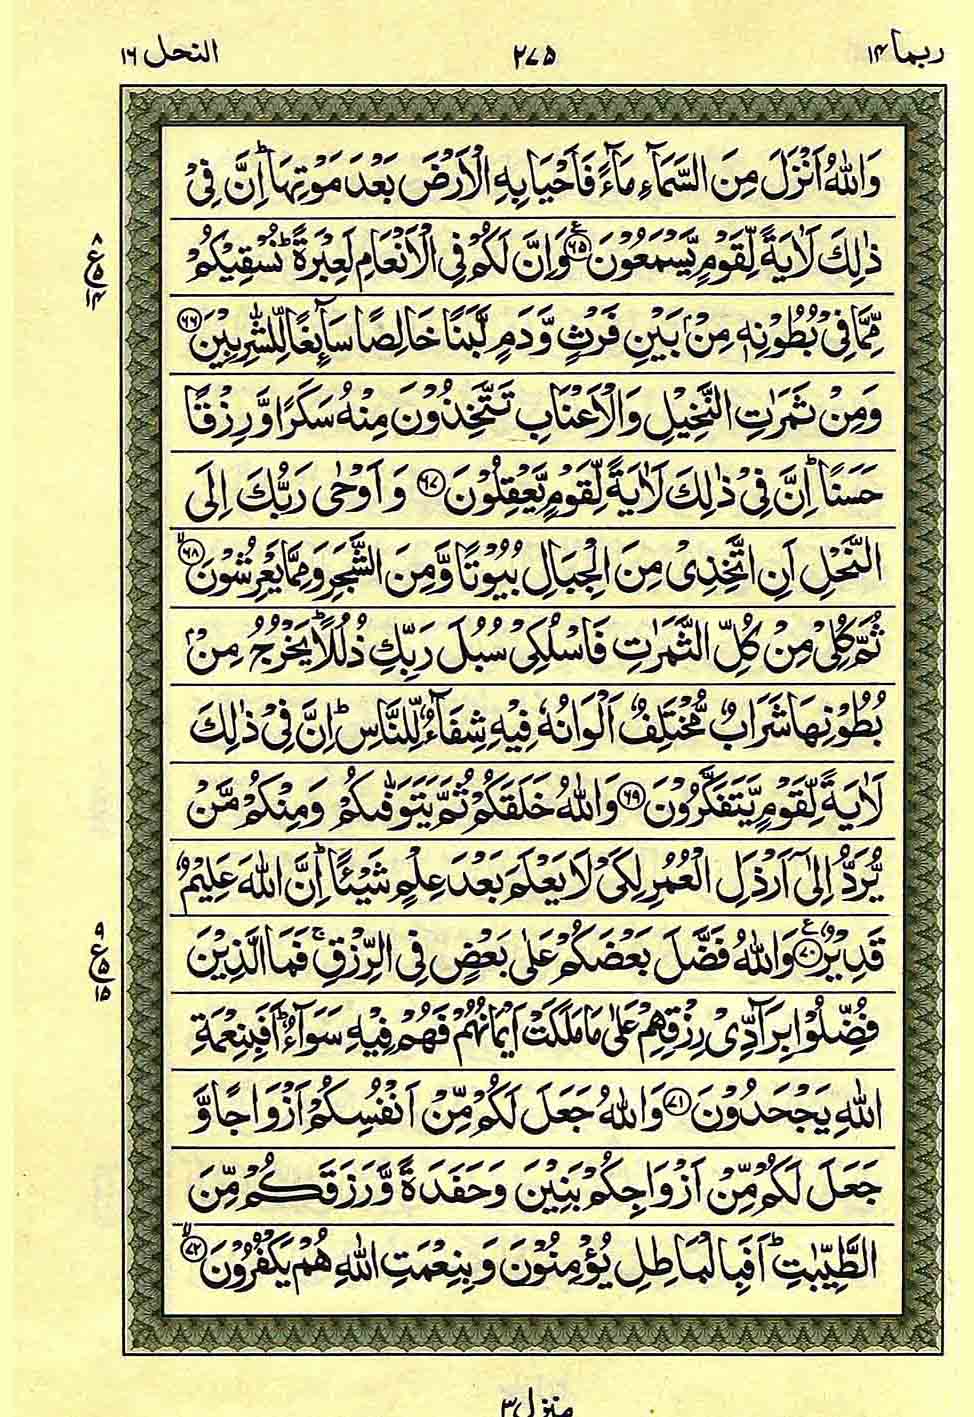 ربما ۱۴
۲۷۵
النحل ۱۶
وَاللّٰهُ اَنْزَلَ مِنَ السَّمَآءِ مَآءً فَاَحْيَا بِهِ الْاَرْضَ بَعْدَ مَوْتِهَا ؕ اِنَّ فِيْ
ذٰلِكَ لَاٰيَةً لِّقَوْمٍ يَّسْمَعُوْنَ ۶۵ ع وَاِنَّ لَكُمْ فِي الْاَنْعَامِ لَعِبْرَةً ؕ نُسْقِيْكُمْ
۸ ع ۵ ۱۴
مِّمَّا فِيْ بُطُوْنِهٖ مِنْۢ بَيْنِ فَرْثٍ وَّدَمٍ لَّبَنًا خَالِصًا سَآئِغًا لِّلشّٰرِبِيْنَ ۶۶
وَمِنْ ثَمَرٰتِ النَّخِيْلِ وَالْاَعْنَابِ تَتَّخِذُوْنَ مِنْهُ سَكَرًا وَّرِزْقًا
حَسَنًا ؕ اِنَّ فِيْ ذٰلِكَ لَاٰيَةً لِّقَوْمٍ يَّعْقِلُوْنَ ۶۷ وَاَوْحٰى رَبُّكَ اِلَى
النَّحْلِ اَنِ اتَّخِذِيْ مِنَ الْجِبَالِ بُيُوْتًا وَّمِنَ الشَّجَرِ وَمِمَّا يَعْرِشُوْنَ ۶۸ ۙ
ثُمَّ كُلِيْ مِنْ كُلِّ الثَّمَرٰتِ فَاسْلُكِيْ سُبُلَ رَبِّكِ ذُلُلًا ؕ يَخْرُجُ مِنْۢ
بُطُوْنِهَا شَرَابٌ مُّخْتَلِفٌ اَلْوَانُهٗ فِيْهِ شِفَآءٌ لِّلنَّاسِ ؕ اِنَّ فِيْ ذٰلِكَ
لَاٰيَةً لِّقَوْمٍ يَّتَفَكَّرُوْنَ ۶۹ وَاللّٰهُ خَلَقَكُمْ ثُمَّ يَتَوَفّٰىكُمْ وَمِنْكُمْ مَّنْ
يُّرَدُّ اِلٰۤى اَرْذَلِ الْعُمُرِ لِكَيْ لَا يَعْلَمَ بَعْدَ عِلْمٍ شَيْئًا ؕ اِنَّ اللّٰهَ عَلِيْمٌ
قَدِيْرٌ ۷۰ ع وَاللّٰهُ فَضَّلَ بَعْضَكُمْ عَلٰى بَعْضٍ فِي الرِّزْقِ ۚ فَمَا الَّذِيْنَ
۹ ع ۵ ۱۵
فُضِّلُوْا بِرَآدِّيْ رِزْقِهِمْ عَلٰى مَا مَلَكَتْ اَيْمَانُهُمْ فَهُمْ فِيْهِ سَوَآءٌ ؕ اَفَبِنِعْمَةِ
اللّٰهِ يَجْحَدُوْنَ ۷۱ وَاللّٰهُ جَعَلَ لَكُمْ مِّنْ اَنْفُسِكُمْ اَزْوَاجًا وَّ
جَعَلَ لَكُمْ مِّنْ اَزْوَاجِكُمْ بَنِيْنَ وَحَفَدَةً وَّرَزَقَكُمْ مِّنَ
الطَّيِّبٰتِ ؕ اَفَبِالْبَاطِلِ يُؤْمِنُوْنَ وَبِنِعْمَتِ اللّٰهِ هُمْ يَكْفُرُوْنَ ۷۲ ۙ
منزل ۳